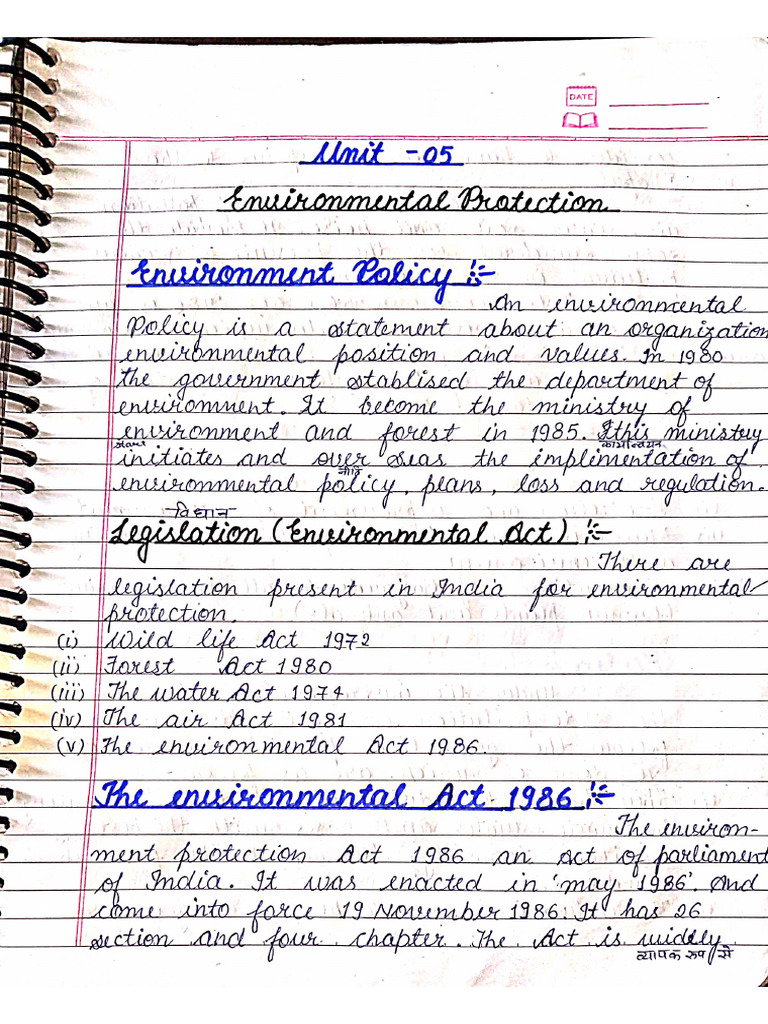 DATE
Unit - 05
Environmental Protection
Environment Policy :-
An environmental
Policy is a statement about an organization
environmental position and values. In 1980
the government stablised the department of
enviromnent. It become the ministry of
environment and forest in 1985. This ministry
start कार्यान्वयन
initiates and over seas the implimentation of
नीति
environmental policy, plans, loss and regulation.
विधान
Legislation (Environmental Act) :-
There are
legislation present in India for environmental
protection.
(i) Wild life Act 1972
(ii) Forest Act 1980
(iii) The water Act 1974
(iv) The air Act 1981
(v) The environmental Act 1986.
The environmental Act 1986 :-
The environ-
ment protection Act 1986 an act of parliament
of India. It was enacted in 'may 1986'. And
come into force 19 November 1986. It has 26
section and four chapter. The Act is widely
व्यापक रूप से